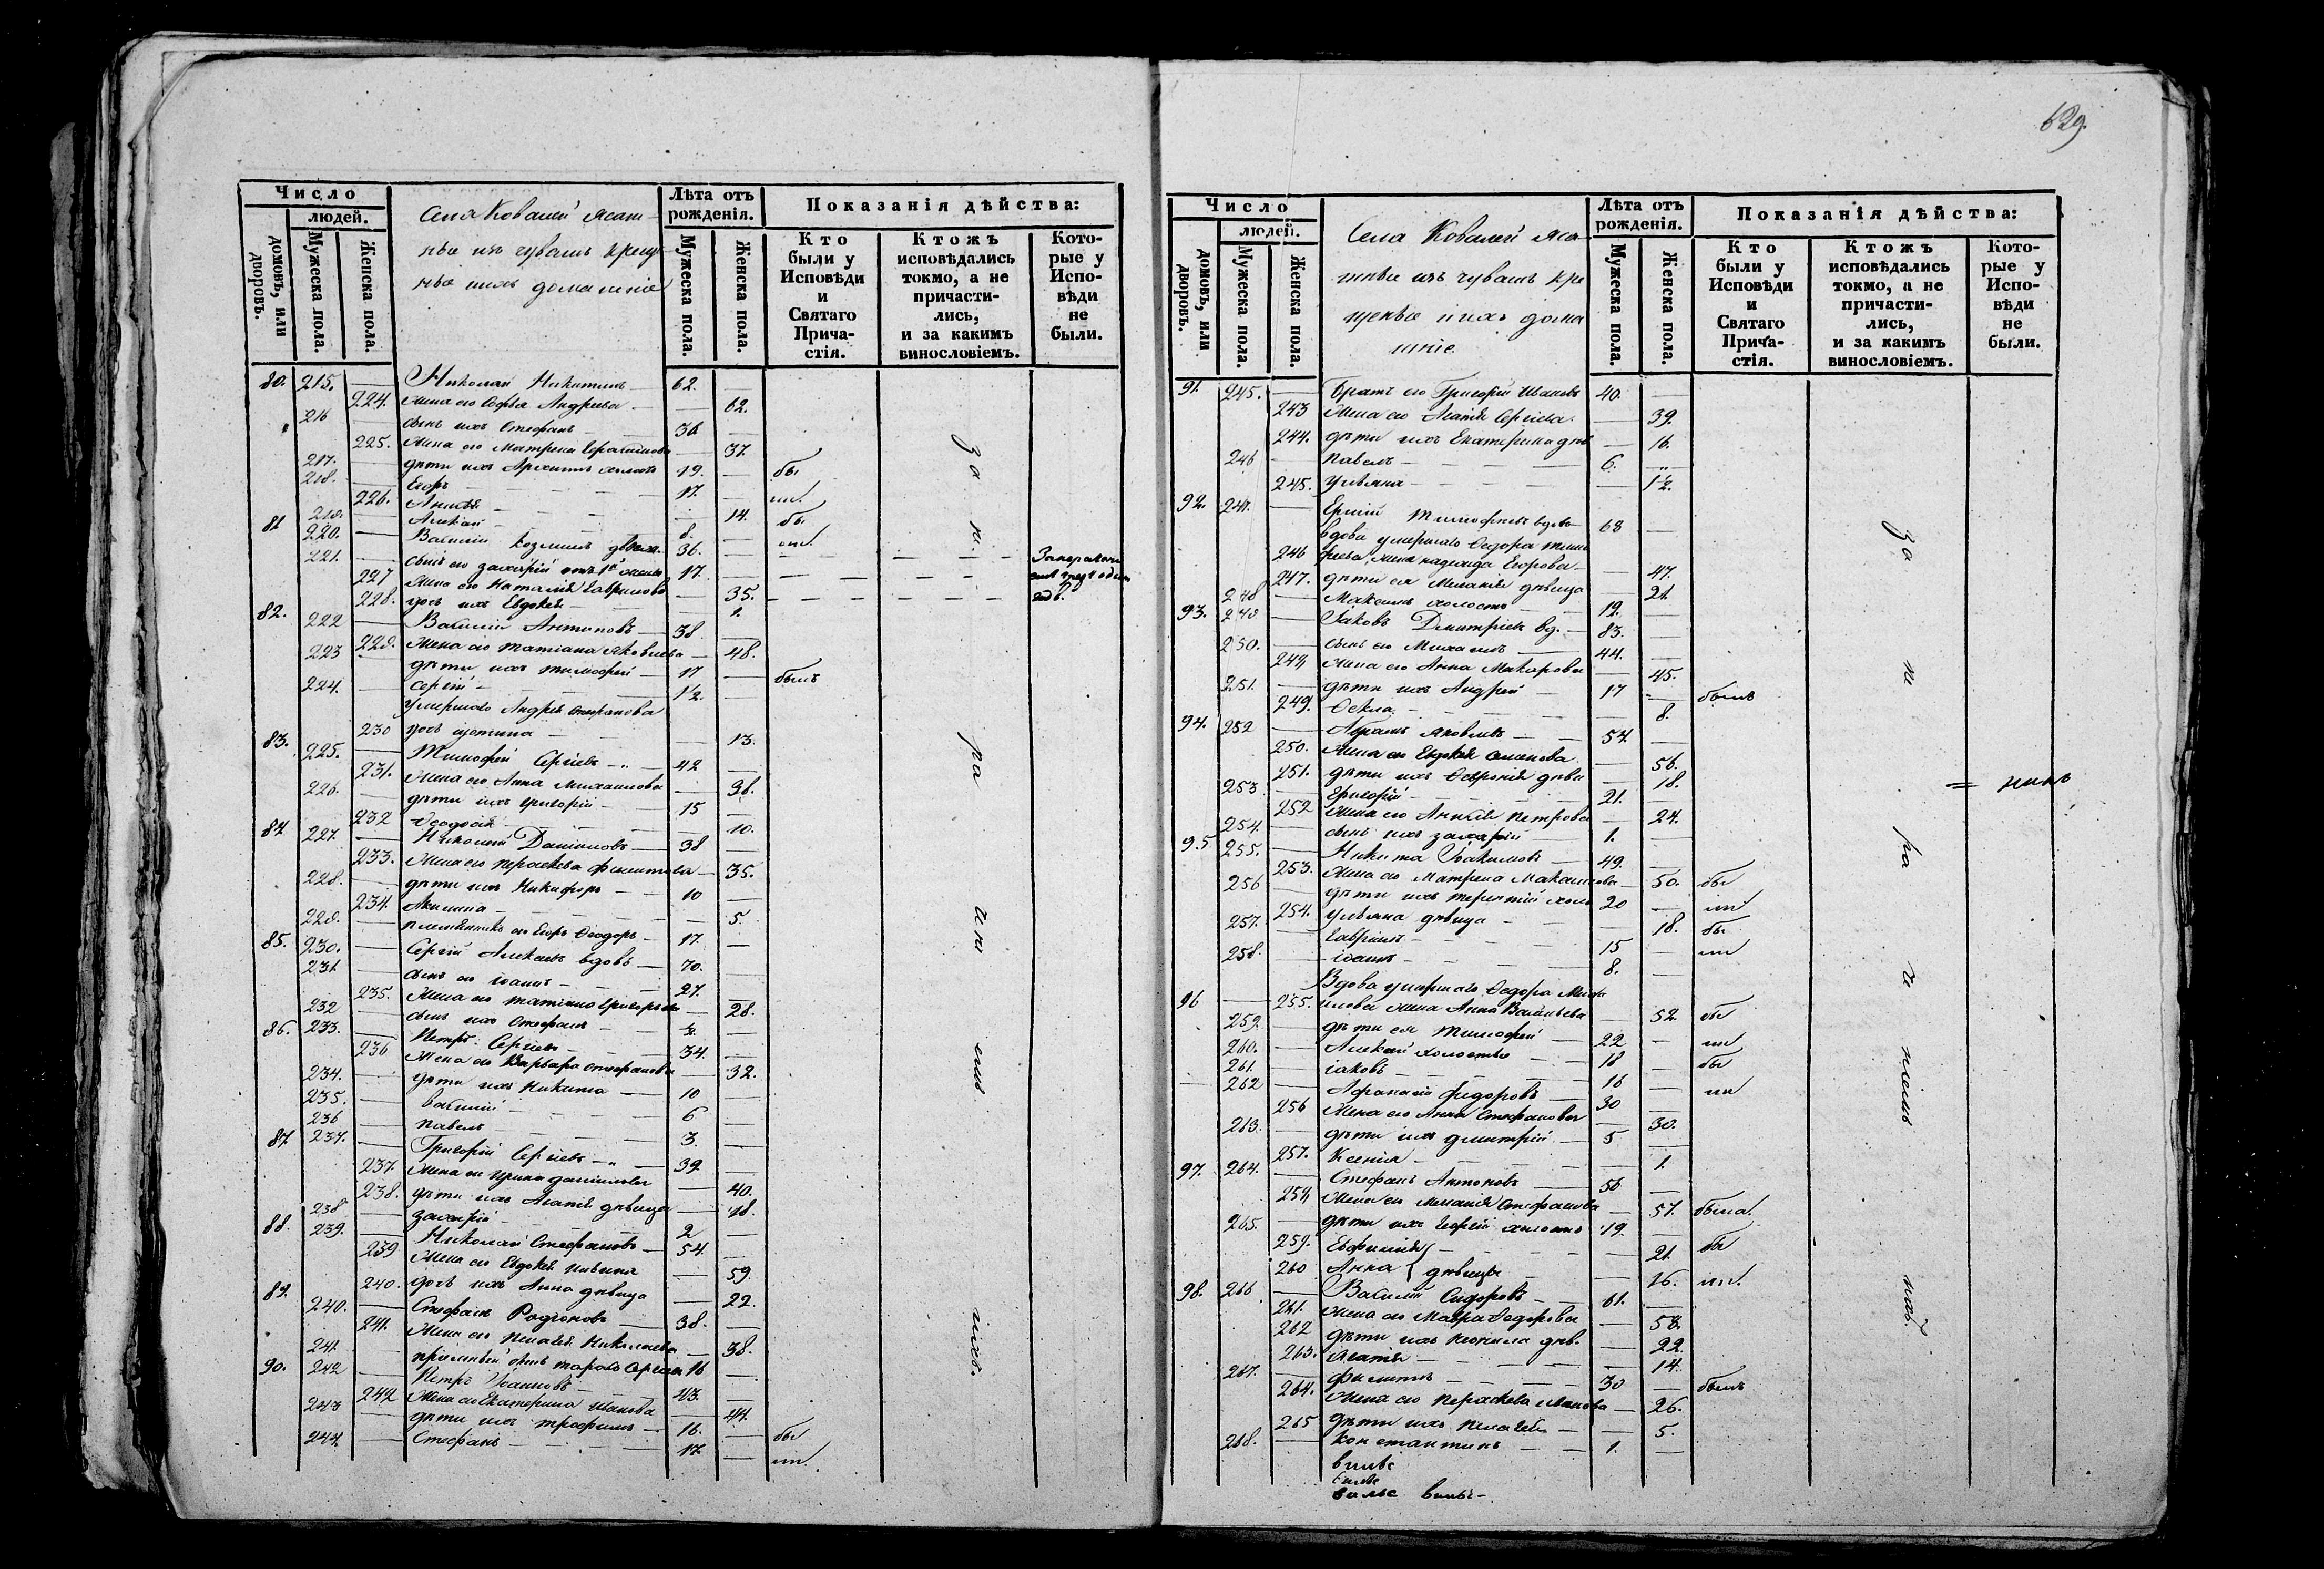 629.
Число
людей.
домовъ, или дворовъ.
Мужеска пола.
Женска пола.
Села Ковалей ясач-
ные изъ чувашъ креще-
ные и ихъ домашніе
Лѣта отъ рожденія.
Мужеска пола.
Женска пола.
Показанія дѣйства:
Кто были у Исповѣди и Святаго Прича-стія.
Ктожъ исповѣдались токмо, а не причасти-лись, и за какимъ винословіемъ.
Кото-рые у Испо-вѣди не были.
80. 215. Николай Никитинъ 62.
224. Жена его Софья Андреева 62.
216 сынъ ихъ Стефанъ 36
225. Жена его Матрена 37.
217. дѣти ихъ Архиппъ холостъ 19. бы
218. Егоръ 17. ли.
226. 14. бы
219. Алексѣй 8. ли.
81 220. Василій Козминъ 36.
221. сынъ его Захарій отъ 1й жены 17.
227 Жена его Наталія Гаврилова 35.
228. дочь ихъ Евдокія 1.
82. 222 Василій Антоновъ 38.
229. Жена его Татіана Яковлева 48.
223 дѣти ихъ Тимофей 17 былъ
224. Сергій 1/2.
умершаго Андрея Стефанова
230 дочь 13.
83. 225. Тимофей Сергіевъ 42
231. Жена его Анна Михаилова 38.
226. дѣти ихъ Григорій 15
232 Феодосія 10.
84 227. Николай Даниловъ 38
233. Жена его Параскева Филиппова 35.
228. дѣти ихъ Никифоръ 10
234. Акилина 5.
229. племянникъ его Егоръ Феодоръ 17.
85. 230. Сергій Алексѣевъ вдовъ 70.
231. сынъ его Іоаннъ 27.
235. Жена его Татіана Григорьева 28.
232 сынъ ихъ Стефанъ
86. 233. Петръ Сергіевъ 34.
236 Жена его Варвара Стефанова 32.
234. дѣти ихъ Никита 10
235. Василій 6
236 Павелъ 3.
87 237. Григорій Сергіевъ 39
237. Жена его Ирина Данилова 40.
238. дѣти ихъ Агапія дѣвица 18.
238 Захарій 2
88. 239. Николай Стефановъ 54.
239 Жена его Евдокія 59
240. дочь ихъ Анна дѣвица 22.
89. 240. Стефанъ Родіоновъ 38.
241. Жена его Пелагея Николаева 38.
241. пріемный сынъ Тарасъ Сергіевъ 16
90. 242 Петръ Іоанновъ 43.
242 Жена его Екатерина Иванова 44.
243 дѣти ихъ Трофимъ 16. бы
244. Стефанъ 17. ли.
за не ра че ні емъ ихъ.
Число
людей.
домовъ, или дворовъ.
Мужеска пола.
Женска пола
Села Ковалей яса-
шные изъ чувашъ кре
щеные и ихъ дома
шніе
Лѣта отъ рожденія.
Мужеска пола.
Женска пола.
Показанія дѣйства:
Кто были у Исповѣди и Святаго Прича-стія.
Ктожъ исповѣдались токмо, а не причасти-лись, и за какимъ винословіемъ.
Кото-рые у Испо-вѣди не были.
91. 245. Братъ его Григорій Ивановъ 40.
243 Жена его Агапія Сергіева 39.
244. дѣти ихъ Екатерина дѣв 16.
246 Павелъ 6.
245. Ульяна 1/2.
92. 247. Тимофеевъ вдовъ 68
вдова умершаго Федора Тимо
246 феева, жена Надежда Егорова 47.
247. дѣти ея Меланія дѣвица 21.
248 Максимъ холостъ 19.
93. 249 Іаковъ Дмитріевъ вд. 83.
250. сынъ его Михаилъ 44.
248 Жена его Анна Макарова 45.
251. дѣти ихъ Андрей 17 былъ
249. Фекла 8.
94. 252 Абрамъ Яковлевъ 57.
250. Жена его Евдокія Семенова 56.
251. дѣти ихъ Феврония дѣви 18.
253 Григорій 21.
252 Жена его Петрова 24.
254. сынъ ихъ Захарій 1.
95 255. Никита Іоакимовъ 49.
253. Жена его Матрена Максимова 50. бы
256 дѣти ихъ Терентій холо 20 ли
254. Ульяна дѣвица 18. бы
257. Гавріилъ 15 ли
258. Іоаннъ 8.
Вдова умершаго Федора Миха
96 255. илова жена Анна Васильева 52. бы
259. дѣти ея Тимофей 22 ли
260. Алексѣй холостые 18 бы
261. Іаковъ 16 ли
262 Афанасій Федоровъ 30
256 Жена его Анна Стефанова 30.
263. дѣти ихъ Дмитрій 5
257. Ксенія 1.
97. 264. Стефанъ Антоновъ 56
258 Жена его Меланія Стефанова 57. была.
265. дѣти ихъ Сергій холостъ 19.
259. Евфимія 21. бы
260 Анна дѣвицы 16. ли.
98. 266 Василій Сидоровъ 61.
261. Жена его Мавра Федорова 58.
262 дѣти ихъ Неонила дѣв. 22.
263. Агапія 14.
267. Филиппъ 30 былъ
264. Жена его Параскева Иванова 26.
265 дѣти ихъ Пелагея 5.
268. Константинъ 1.
за не ра че ніемъ